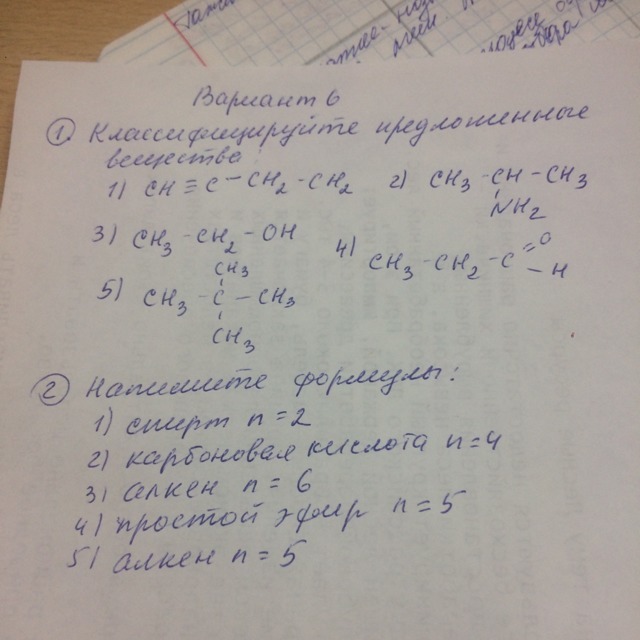 Вариант 6
① Классифицируйте предложенные
вещества:
1) CH ≡ C – CH2 – CH2 2) CH3 – CH – CH3
NH2
3) CH3 – CH2 – OH 4) CH3 – CH2 – C = O
– H
CH3
5) CH3 – C – CH3
CH3
② Напишите формулы:
1) спирт n = 2
2) карбоновая кислота n = 4
3) алкен n = 6
4) простой эфир n = 5
5) алкен n = 5